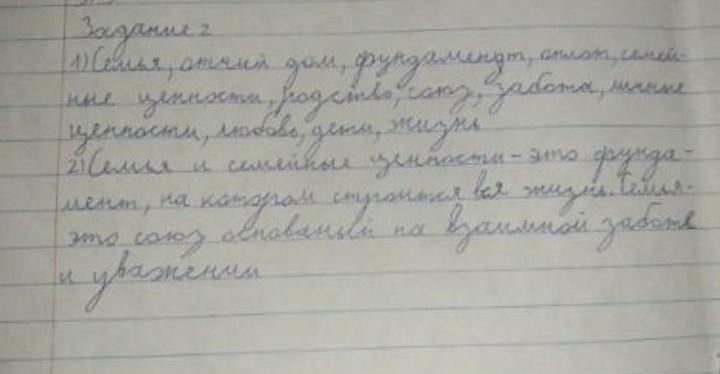 Задание 2
1) Семья, отчий дом, фундамендт, оплот, семей-
ные ценности, родство, союз, забота, личные
ценности, любовь, дети, жизнь
2) Семья и семейные ценности - это фунда-
мент, на котором строится вся жизнь. Семья -
это союз основаный на взаимной заботе
и уважении